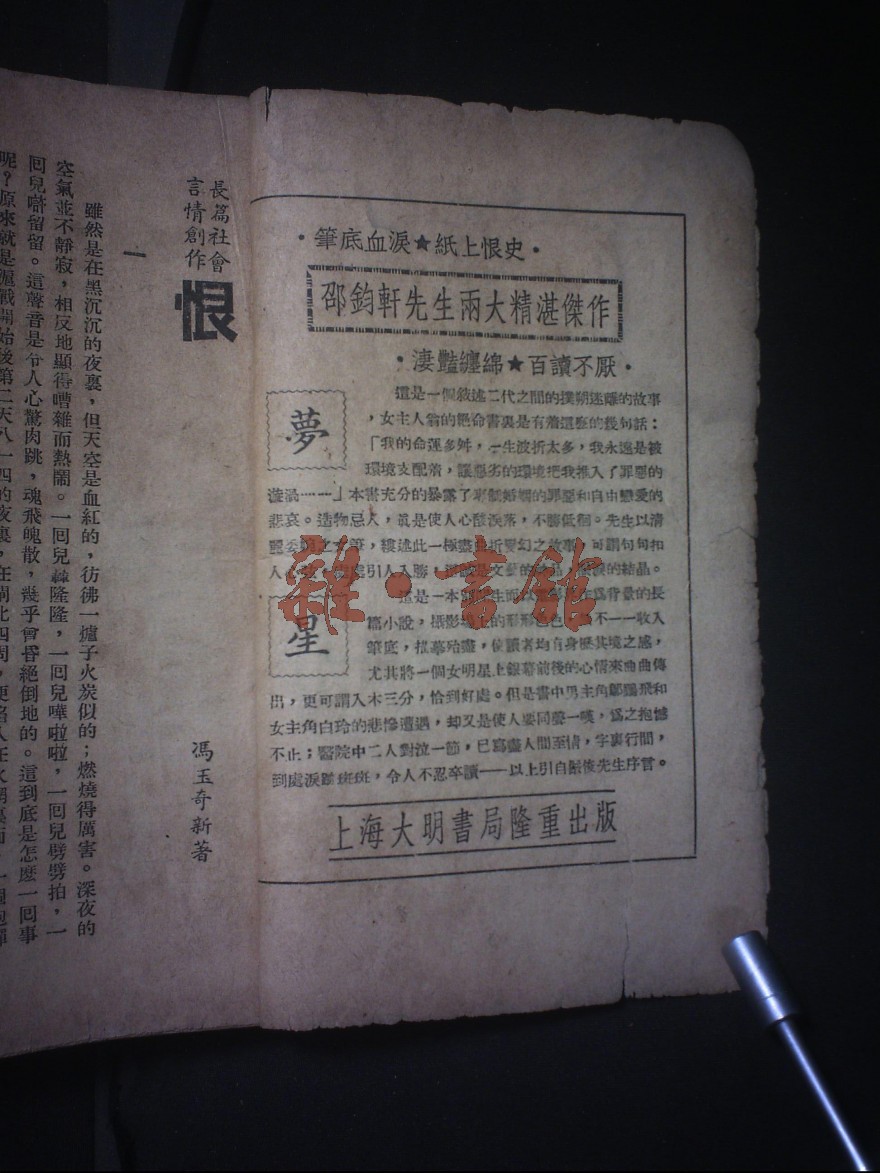 ·筆底血淚★紙上恨史·
邵鈞軒先生兩大精湛傑作
·淒豔纏綿★百讀不厭·
夢
這是一個敍述二代之間的撲朔迷離的故事
，女主人翁的絕命書裏是有着這麼的幾句話：
「我的命運多舛，一生波折太多，我永遠是被
環境支配着，讓惡劣的環境把我推入了罪惡的
漩渦……」本書充分的暴露了 婚姻的罪惡和自由戀愛的
悲哀。造物忌人，眞是使人心酸淚落，不勝低徊。先生以清
麗委 之 筆，縷述此一極盡 折 幻之故事，可謂句句扣
人 處引人入勝， 是文藝的 的結晶。
星
這是一本 在爲背景的長
篇小說，攝影場上的形形色 不一一收入
筆底，描摹殆盡，使讀者均有身歷其境之感，
尤其將一個女明星上銀幕前後的心情來曲曲傳
出，更可謂入木三分，恰到好處。但是書中男主角鄭 飛和
女主角白玲的悲慘遭遇，却又是使人要同聲一嘆，爲之抱憾
不止；醫院中二人對泣一節，已寫盡人間至情，字裏行間，
到處淚蹟斑斑，令人不忍卒讀——以上引自 先生序言。
上海大明書局隆重出版
雜·書館
長篇社會
言情創作
恨
馮玉奇新著
一
雖然是在黑沉沉的夜裏，但天空是血紅的，彷彿一爐子火炭似的；燃燒得厲害。深夜的
空氣並不靜寂，相反地顯得嘈雜而熱鬧。一回兒轟隆隆，一回兒嘩啦啦，一回兒劈劈拍，一
回兒嘶留留。這聲音是令人心驚肉跳，魂飛魄散，幾乎會昏絕倒地的。這到底是怎麼一回事
呢？原來就是滬戰開始後第二天八一四的夜裏，在閘北四周，